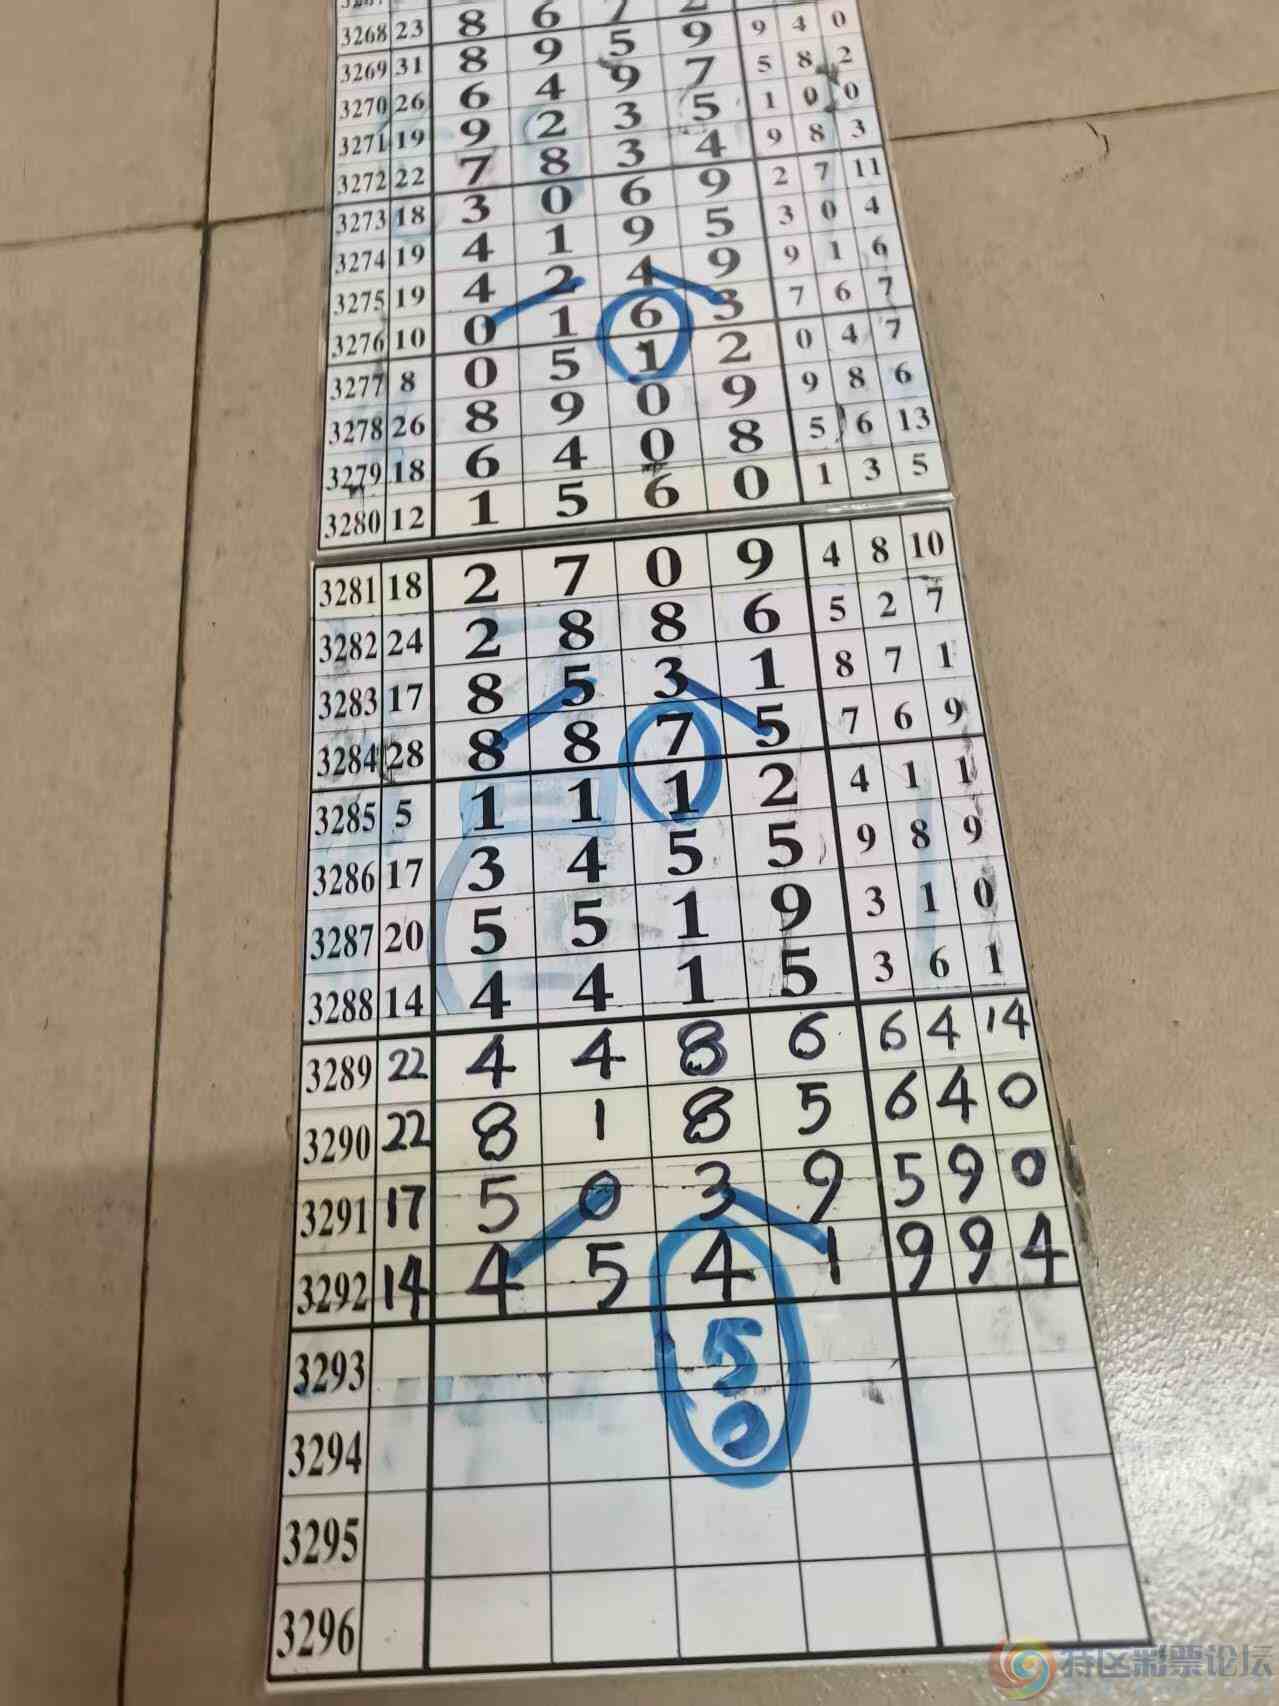 3268 23 8 6 7 2 9 4 0
3269 31 8 9 5 9 5 8 2
3270 26 6 4 9 7 1 0 0
3271 19 9 2 3 5 9 8 3
3272 22 7 8 3 4 2 7 11
3273 18 3 0 6 9 3 0 4
3274 19 4 1 9 5 9 1 6
3275 19 4 2 4 9 7 6 7
3276 10 0 1 6 3 0 4 7
3277 8 0 5 1 2 9 8 6
3278 26 8 9 0 9 5 6 13
3279 18 6 4 0 8 1 3 5
3280 12 1 5 6 0
3281 18 2 7 0 9 4 8 10
3282 24 2 8 8 6 5 2 7
3283 17 8 5 3 1 8 7 1
3284 28 8 8 7 5 7 6 9
3285 5 1 1 1 2 4 1 1
3286 17 3 4 5 5 9 8 9
3287 20 5 5 1 9 3 1 0
3288 14 4 4 1 5 3 6 1
3289 22 4 4 8 6 6 4 14
3290 22 8 1 8 5 6 4 0
3291 17 5 0 3 9 5 9 0
3292 14 4 5 4 1 9 9 4
3293 5
3294 0
3295
3296
特区彩票论坛